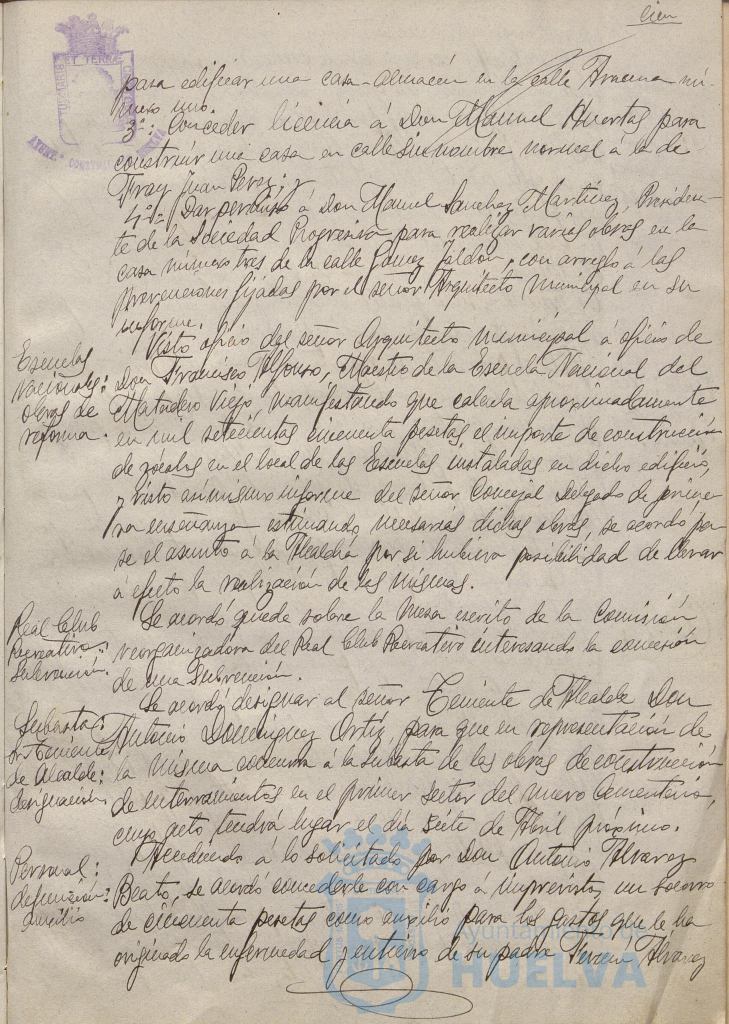 cien
para edificar una casa-almacén en la calle Aracena nú-
mero uno.
3º: Conceder licencia á Don Manuel Huertas para
construir una casa en calle sin nombre normal á la de
Fray Juan Perez; y
4º: Dar permiso á Don Manuel Sanchez Martínez, Presiden-
te de la Sociedad Progresiva para realizar varias obras en la
casa número tres de la calle Gomez Jaldon, con arreglo á las
prevenciones fijadas por el señor Arquitecto Municipal en su
informe.
Escuelas
Nacionales:
obras de
reforma.
Visto oficio del señor Arquitecto municipal á oficio de
Don Francisco Alfonso, Maestro de la Escuela Nacional del
Matadero Viejo, manifestando que calcula aproximadamente
en mil setecientas cincuenta pesetas el importe de construccion
de zócalos en el local de las Escuelas instaladas en dicho edificio,
y visto asimismo informe del señor Concejal Delgado de prime-
ra enseñanza estimando necesarias dichas obras, se acordó pa-
se el asunto á la Alcaldía por si hubiera posibilidad de llevar
á efecto la realización de las mismas.
Real Club
Recreativo:
Subvención.
Se acordó quede sobre la Mesa escrito de la Comisión
reorganizadora del Real Club Recreativo interesando la concesión
de una subvención.
Subasta:
Sr. Teniente
de Alcalde:
designación
Se acordó designar al señor Teniente de Alcalde Don
Antonio Dominguez Ortiz, para que en representación de
la misma concurra á la subasta de las obras de construcción
de enterramientos en el primer sector del nuevo Cementerio,
cuyo acto tendrá lugar el día siete de Abril próximo.
Personal:
defunción:
auxilio
Accediendo á lo solicitado por Don Antonio Alvarez
Beato, se acordó concederle con cargo á imprevistos, un socorro
de cincuenta pesetas como auxilio para los gastos que le ha
originado la enfermedad y entierro de su padre Alvarez
Ayuntamiento de
HUELVA